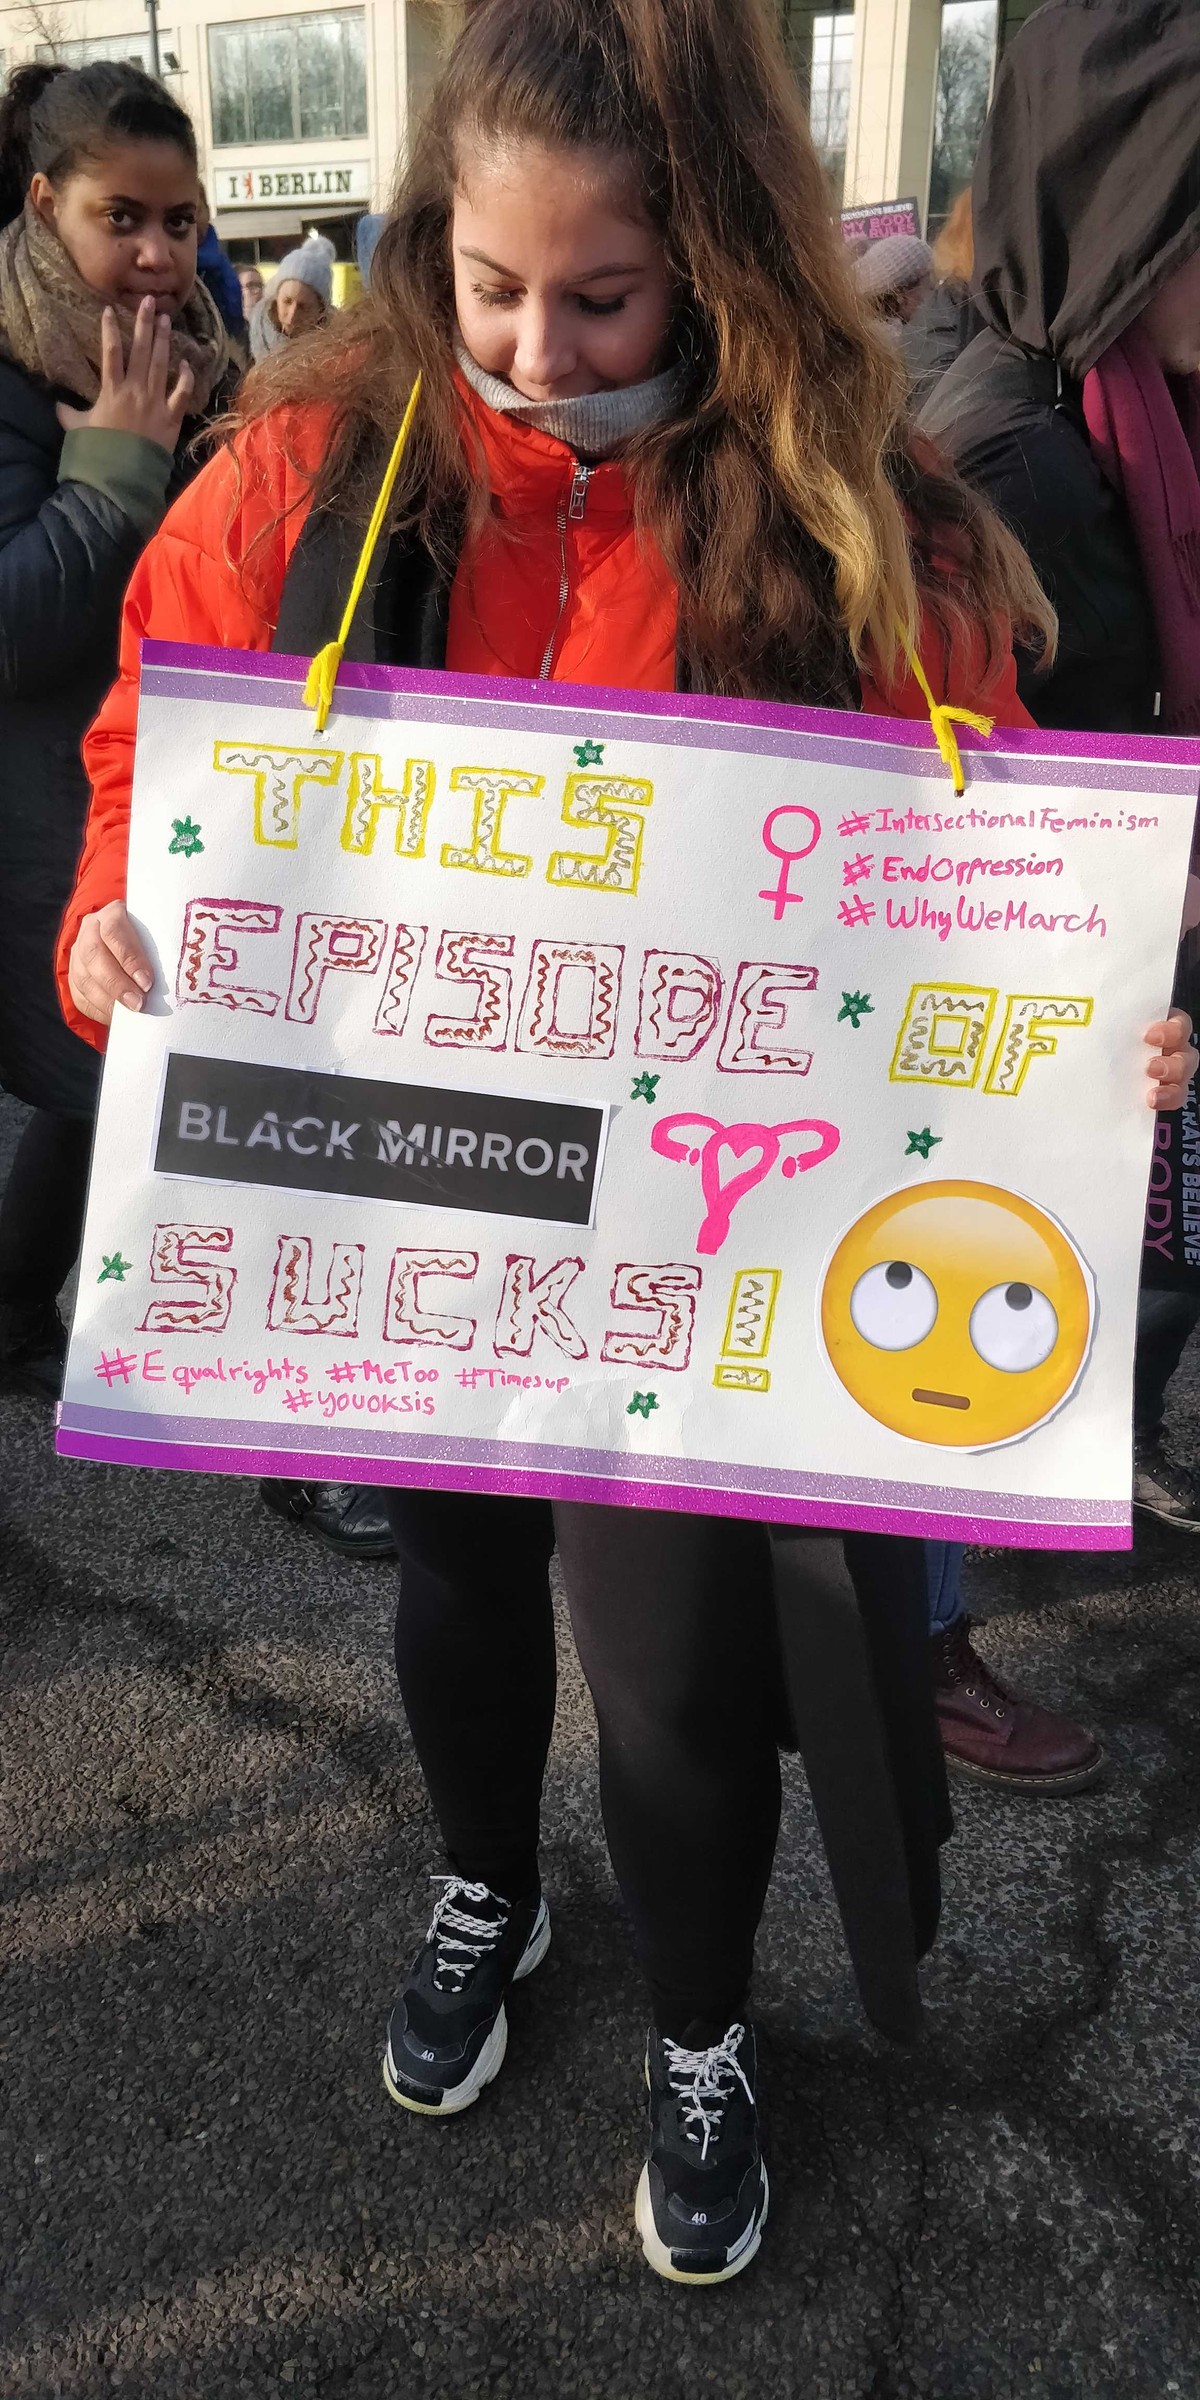 I BERLIN
MY BODY
RULES
THIS
#IntersectionalFeminism
#EndOppression
#WhyWeMarch
EPISODE OF
BLACK MIRROR
SUCKS!
#Equalrights #MeToo #Timesup
#youoksis
BELIEVE!
BODY
40
40